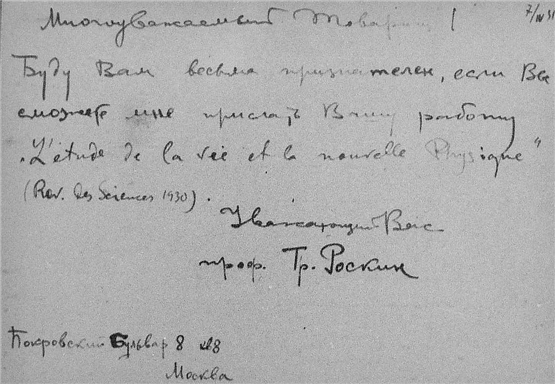 7/IV 31
Многоуважаемый Товарищ!
Буду Вам весьма признателен, если Вы
сможете мне прислать Вашу работу
„L'étude de la vie et la nouvelle Physique"
(Rev. des Sciences 1930).
Уважающий Вас
проф. Гр. Роскин
Покровский Бульвар 8 кв 8
Москва